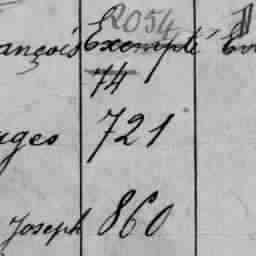 R054
ançois Exempté
74
ges 721
Joseph 860